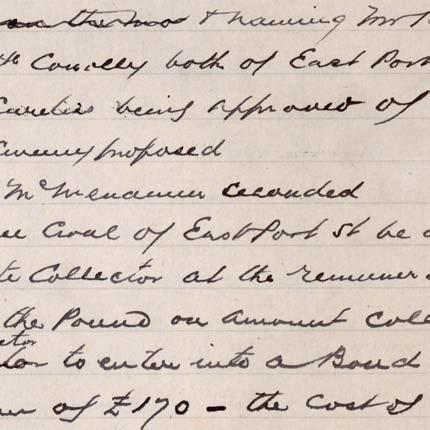 + naming Mr
Conolly both of East Port
Sureties being approved of
Sweeny proposed
Mc Menamin seconded
Coal of East Port St be
te Collector at the remuner
the Pound on amount coll
ctor
to enter into a Bond
of £170 – the Cost of